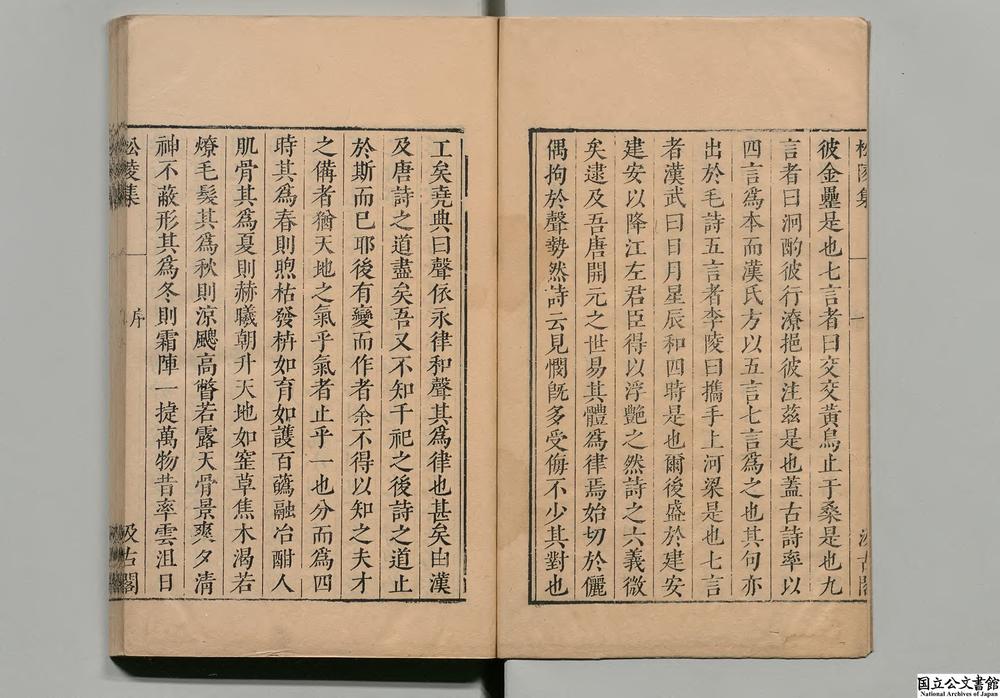 彼金罍是也七言者曰交交黄鳥止于桑是也九
言者曰泂酌彼行潦挹彼注茲是也蓋古詩率以
四言爲本而漢氏方以五言七言爲之也其句亦
出於毛詩五言者李陵曰攜手上河梁是也七言
者漢武曰日月星辰和四時是也爾後盛於建安
建安以降江左君臣得以浮艷之然詩之六義微
矣逮及吾唐開元之世易其體爲律焉始切於儷
偶拘於聲勢然詩云見憫既多受侮不少其對也
工矣堯典曰聲依永律和聲其爲律也甚矣由漢
及唐詩之道盡矣吾又不知千祀之後詩之道止
於斯而已耶後有變而作者余不得以知之夫才
之備者猶天地之氣乎氣者止乎一也分而爲四
時其爲春則煦枯發枿如育如護百蘤融冶酣人
肌骨其爲夏則赫曦朝升天地如窰草焦木渴若
燎毛髮其爲秋則涼颸高瞥若露天骨景爽夕清
神不蔽形其爲冬則霜陣一捷萬物昔率雲沮日
松陵集 序 汲古閣
国立公文書館
National Archives of Japan